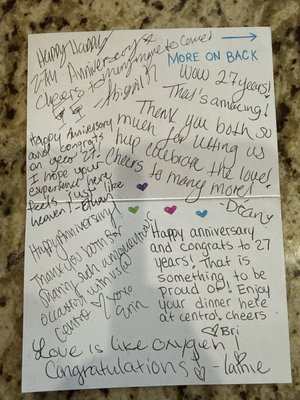 Happy
27th Anniversary &
cheers to many more to come!
MORE ON BACK
Wow 27 years!
That's amazing!
Thank you both so
much for letting us
help celebrate the love!
Cheers to many more!
- Dean
Happy Anniversary
and congrats
on year 27!
I hope your
experience here
feels just like
heaven! - Ethan
Happy Anniversary!
Thank you both for
sharing such a
occasion with us @
Central xoxo
Erin
Happy anniversary
and congrats to 27
years! That is
something to be
proud of! Enjoy
your dinner here
at central. cheers
Bri
Love is like oxygen!
Congratulations